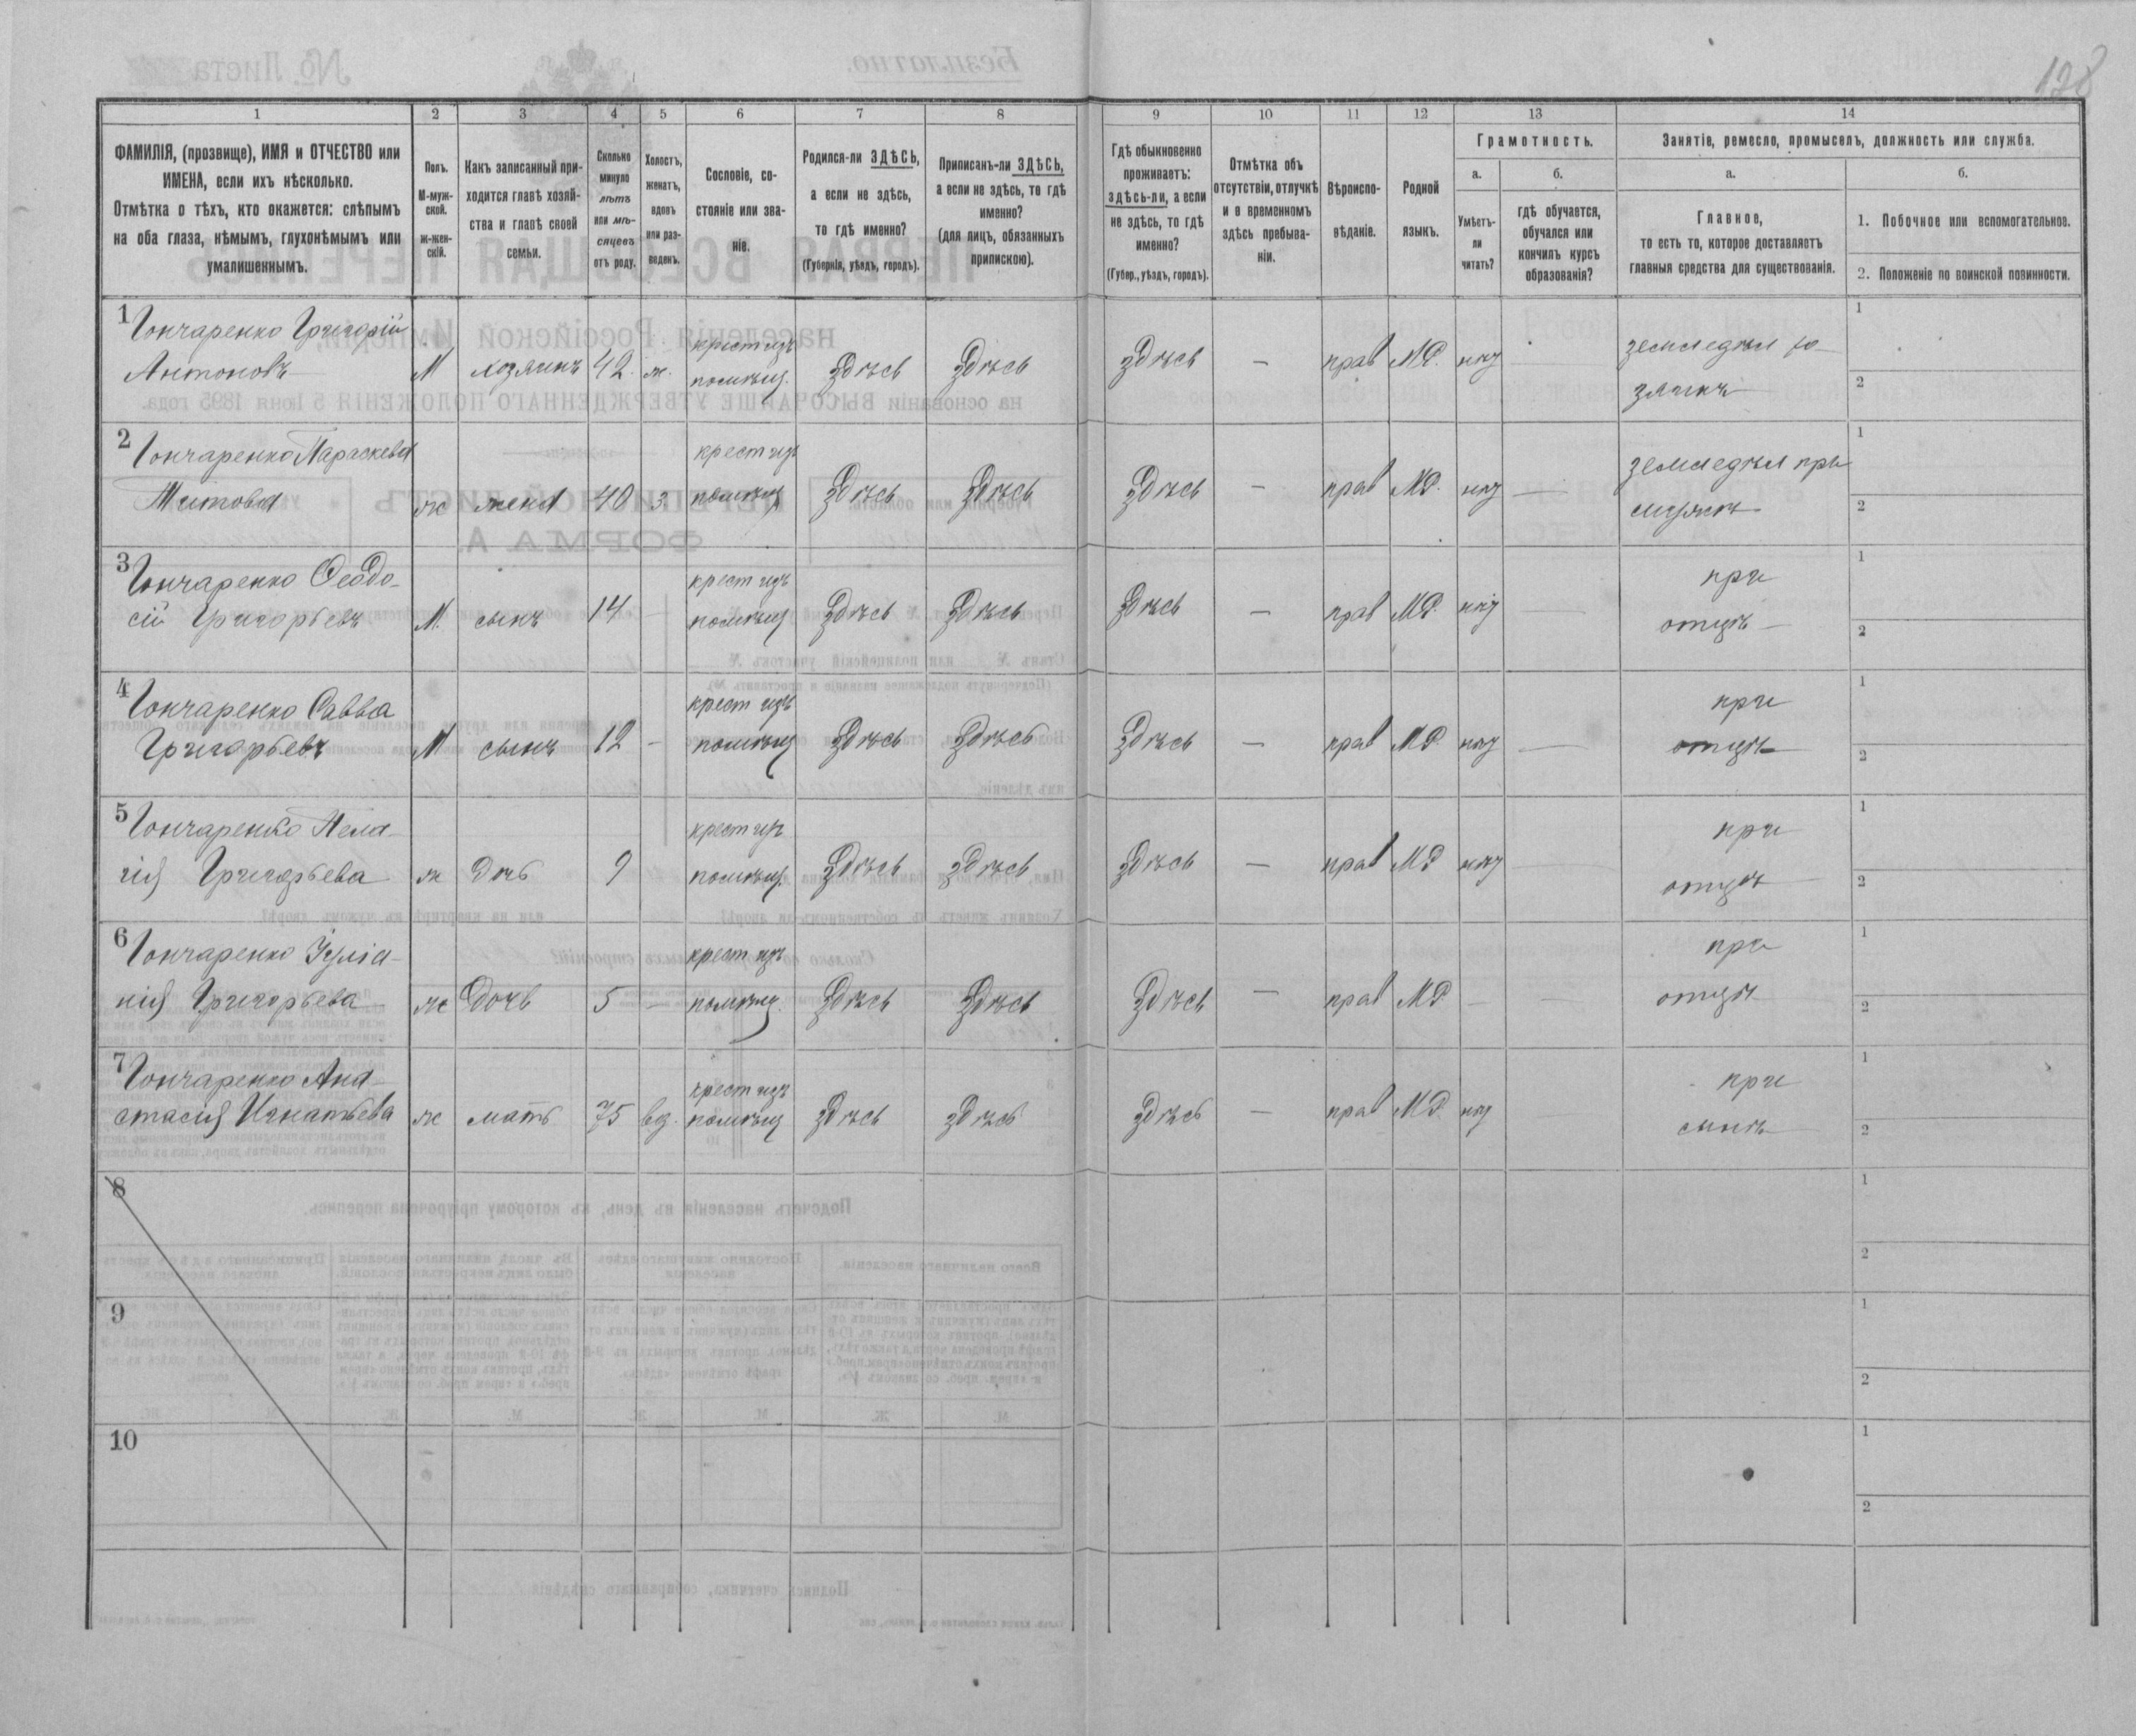 128
1 2 3 4 5 6 7 8 9 10 11 12 13 14
ФАМИЛІЯ, (прозвище), ИМЯ и ОТЧЕСТВО или
ИМЕНА, если ихъ нѣсколько.
Отмѣтка о тѣхъ, кто окажется: слѣпымъ
на оба глаза, нѣмымъ, глухонѣмымъ или
умалишеннымъ.
Полъ.
М-муж-
ской.
Ж-жен-
скій.
Какъ записанный при-
ходится главѣ хозяй-
ства и главѣ своей
семьи.
Сколько
минуло
лѣтъ
или мѣ-
сяцевъ
отъ роду.
Холостъ,
женатъ,
вдовъ
или раз-
веденъ.
Сословіе, со-
стояніе или зва-
ніе.
Родился-ли ЗДѢСЬ,
а если не здѣсь,
то гдѣ именно?
(Губернія, уѣздъ, городъ).
Приписанъ-ли ЗДѢСЬ,
а если не здѣсь, то гдѣ
именно?
(для лицъ, обязанныхъ
припискою).
Гдѣ обыкновенно
проживаетъ:
здѣсь-ли, а если
не здѣсь, то гдѣ
именно?
(Губер., уѣздъ, городъ).
Отмѣтка объ
отсутствіи, отлучкѣ
и о временномъ
здѣсь пребыва-
ніи.
Вѣроиспо-
вѣданіе.
Родной
языкъ.
Грамотность.
а.
Умѣетъ-
ли
читать?
б.
гдѣ обучается,
обучался или
кончилъ курсъ
образованія?
Занятіе, ремесло, промыселъ, должность или служба.
а.
Главное,
то есть то, которое доставляетъ
главныя средства для существованія.
б.
1. Побочное или вспомогательное.
2. Положеніе по воинской повинности.
1 Гончаренко Григорій
Антоновъ М хозяинъ 42. ж. крест изъ помѣщ. Здѣсь Здѣсь здѣсь — прав МР. нѣт —
земледѣл хо-
зяинъ
1
2
2 Гончаренко Параскева
Титова ж жена 40 з крест изъ помѣщ Здѣсь Здѣсь Здѣсь — прав МР. нѣт —
земледѣл при
мужѣ
1
2
3 Гончаренко Феодо-
сій Григорьевъ М. сынъ 14 — крест изъ помѣщ Здѣсь Здѣсь Здѣсь — прав МР. нѣт —
при
отцѣ —
1
2
4 Гончаренко Савва
Григорьевъ М сынъ 12 — крест изъ помѣщ Здѣсь Здѣсь Здѣсь — прав МР нѣт —
при
отцѣ
1
2
5 Гончаренко Пела-
гія Григорьева ж дочь 9 крест изъ помѣщ. Здѣсь здѣсь здѣсь — прав МР нѣт
при
отцѣ
1
2
6 Гончаренко Іуліа-
нія Григорьева ж Дочь 5 — крест изъ помѣщ. Здѣсь Здѣсь Здѣсь — прав МР — —
при
отцѣ
1
2
7 Гончаренко Ана-
стасія Игнатьева ж мать 75 вд. крест изъ помѣщ здѣсь здѣсь здѣсь — прав МР. нѣт
при
сынѣ
1
2
8
1
2
9
1
2
10
1
2